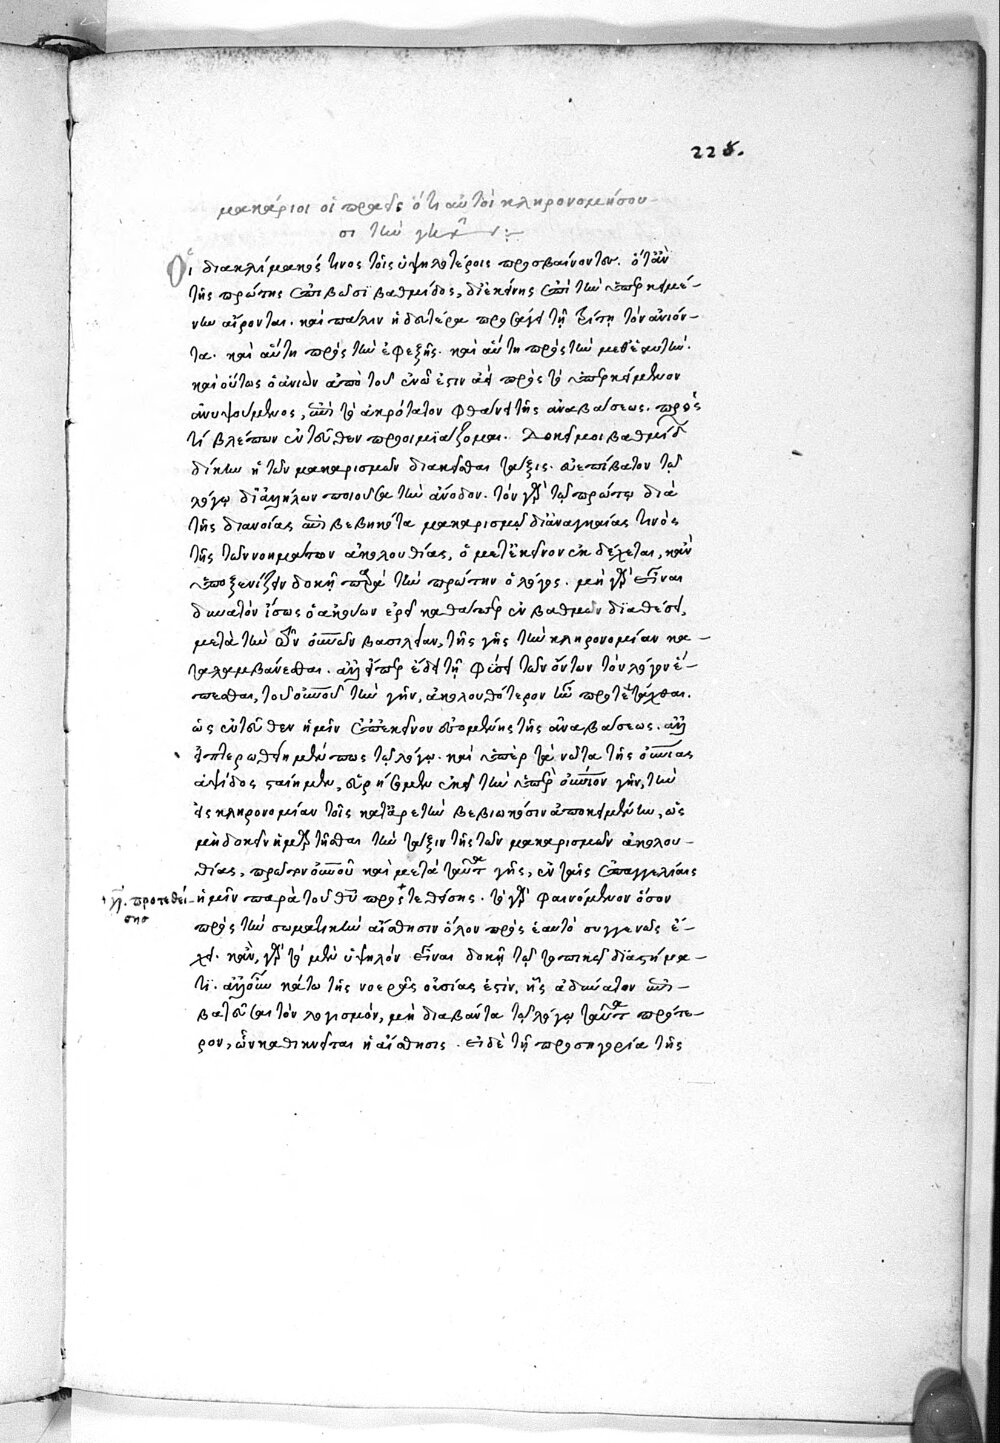 225.
μακάριοι οἱ πραεῖς ὅτι αὐτοὶ κληρονομήσου-
σι τὴν γῆν :-
Οἱ διακλίμακός τινος τοῖς ὑψηλοτέροις προσβαίνοντες. ὅταν
τῆς πρώτης ἐπιβῶσι βαθμίδος, δἰεκείνης ἐπὶ τὴν ὑπερκειμέ-
νην αἴρονται. καὶ πάλιν ἡ δευτέρα προσάγει τῇ τρίτῃ τὸν ἀνιόν-
τα. καὶ αὕτη πρὸς τὴν ἐφεξῆς. καὶ αὕτη πρὸς τὴν μεθ' ἑαυτήν.
καὶ οὕτως ὁ ἀνιὼν ἀπὸ τοῦ ἐνῶ ἐστιν ἀεὶ πρὸς τὸ ὑπερκείμενον
ἀνυψούμενος, ἐπὶ τὸ ἀκρότατον φθάνει τῆς ἀναβάσεως. πρὸς
τί βλέπων ἐντεῦθεν προοιμϊάζομαι. Δοκεῖ μοι βαθμίδ
δίκην ἡ τῶν μακαρισμῶν διακεῖσθαι τάξις. εὐεπίβατον τῷ
λόγῳ δἰἀλλήλων ποιοῦσα τὴν ἄνοδον. τὸν γὰρ τῷ πρώτῳ διὰ
τῆς διανοίας ἐπιβεβηκότα μακαρισμῷ δἰἀναγκαίας τινὸς
τῆς τῶν νοημάτων ἀκολουθίας, ὁ μετ' ἐκεῖνον ἐκδέχεται, κἂν
ὑποξενίζειν δοκῇ παρὰ τὴν πρώτην ὁ λόγος. μὴ γὰρ εἶναι
δυνατὸν ἴσως ὁ ἀκούων ἐρεῖ καθάπερ ἐν βαθμῶν διαθέσει,
μετὰ τὴν τῶν οὐνῶν βασιλείαν, τῆς γῆς τὴν κληρονομίαν κα-
ταλαμβάνεσθαι. ἀλλ' εἴπερ ἔδει τῇ φύσει τῶν ὄντων τὸν λόγον ἕ-
πεσθαι, τοῦ οὐνοῦ τὴν γῆν, ἀκολουθότερον ἦν προτετάχθαι.
ὡς ἐντεῦθεν ἡμῖν ἐπ' ἐκεῖνον ἐσομένης τῆς ἀναβάσεως. ἀλλ'
εἰ πτερωθείημέν πως τῷ λόγῳ. καὶ ὑπὲρ τὰ νῶτα τῆς οὐνίας
ἁψίδος σταίημεν, εὑρήσομεν ἐκεῖ τὴν ὑπερουνιον γῆν, τὴν
εἰς κληρονομίαν τοῖς κατ' ἀρετὴν βεβιωκόσιν ἀποκειμένην, ὡς
μὴ δοκεῖν ἡμαρτῆσθαι τὴν τάξιν τῆς τῶν μακαρισμῶν ἀκολου-
θίας, πρῶτον οὐνοῦ καὶ μετὰ ταῦτα γῆς, ἐν ταῖς ἐπαγγελίαις
ἡμῖν παρὰ τοῦ θῦ προστεθείσης. τὸ γὰρ φαινόμενον ὅσον
γρ. προτεθεί-
σησ
πρὸς τὴν σωματικὴν αἴσθησιν ὅλον πρὸς ἑαυτό συγγενῶς ἔ-
χει. κἂν, γὰρ τὸ μὲν ὑψηλόν εἶναι δοκῇ τῷ τοπικῷ διαστήμα-
τι. ἀλλ' οὖν κάτω τῆς νοερᾶς οὐσίας ἐστίν, ἧς ἀδύνατον ἐπι-
βατεῦσαι τὸν λογισμόν, μὴ διαβάντα τῷ λόγῳ ταῦτα πρότε-
ρον, ὧν καθικνεῖται ἡ αἴσθησις. εἰ δὲ τῇ προσηγορία τῆς